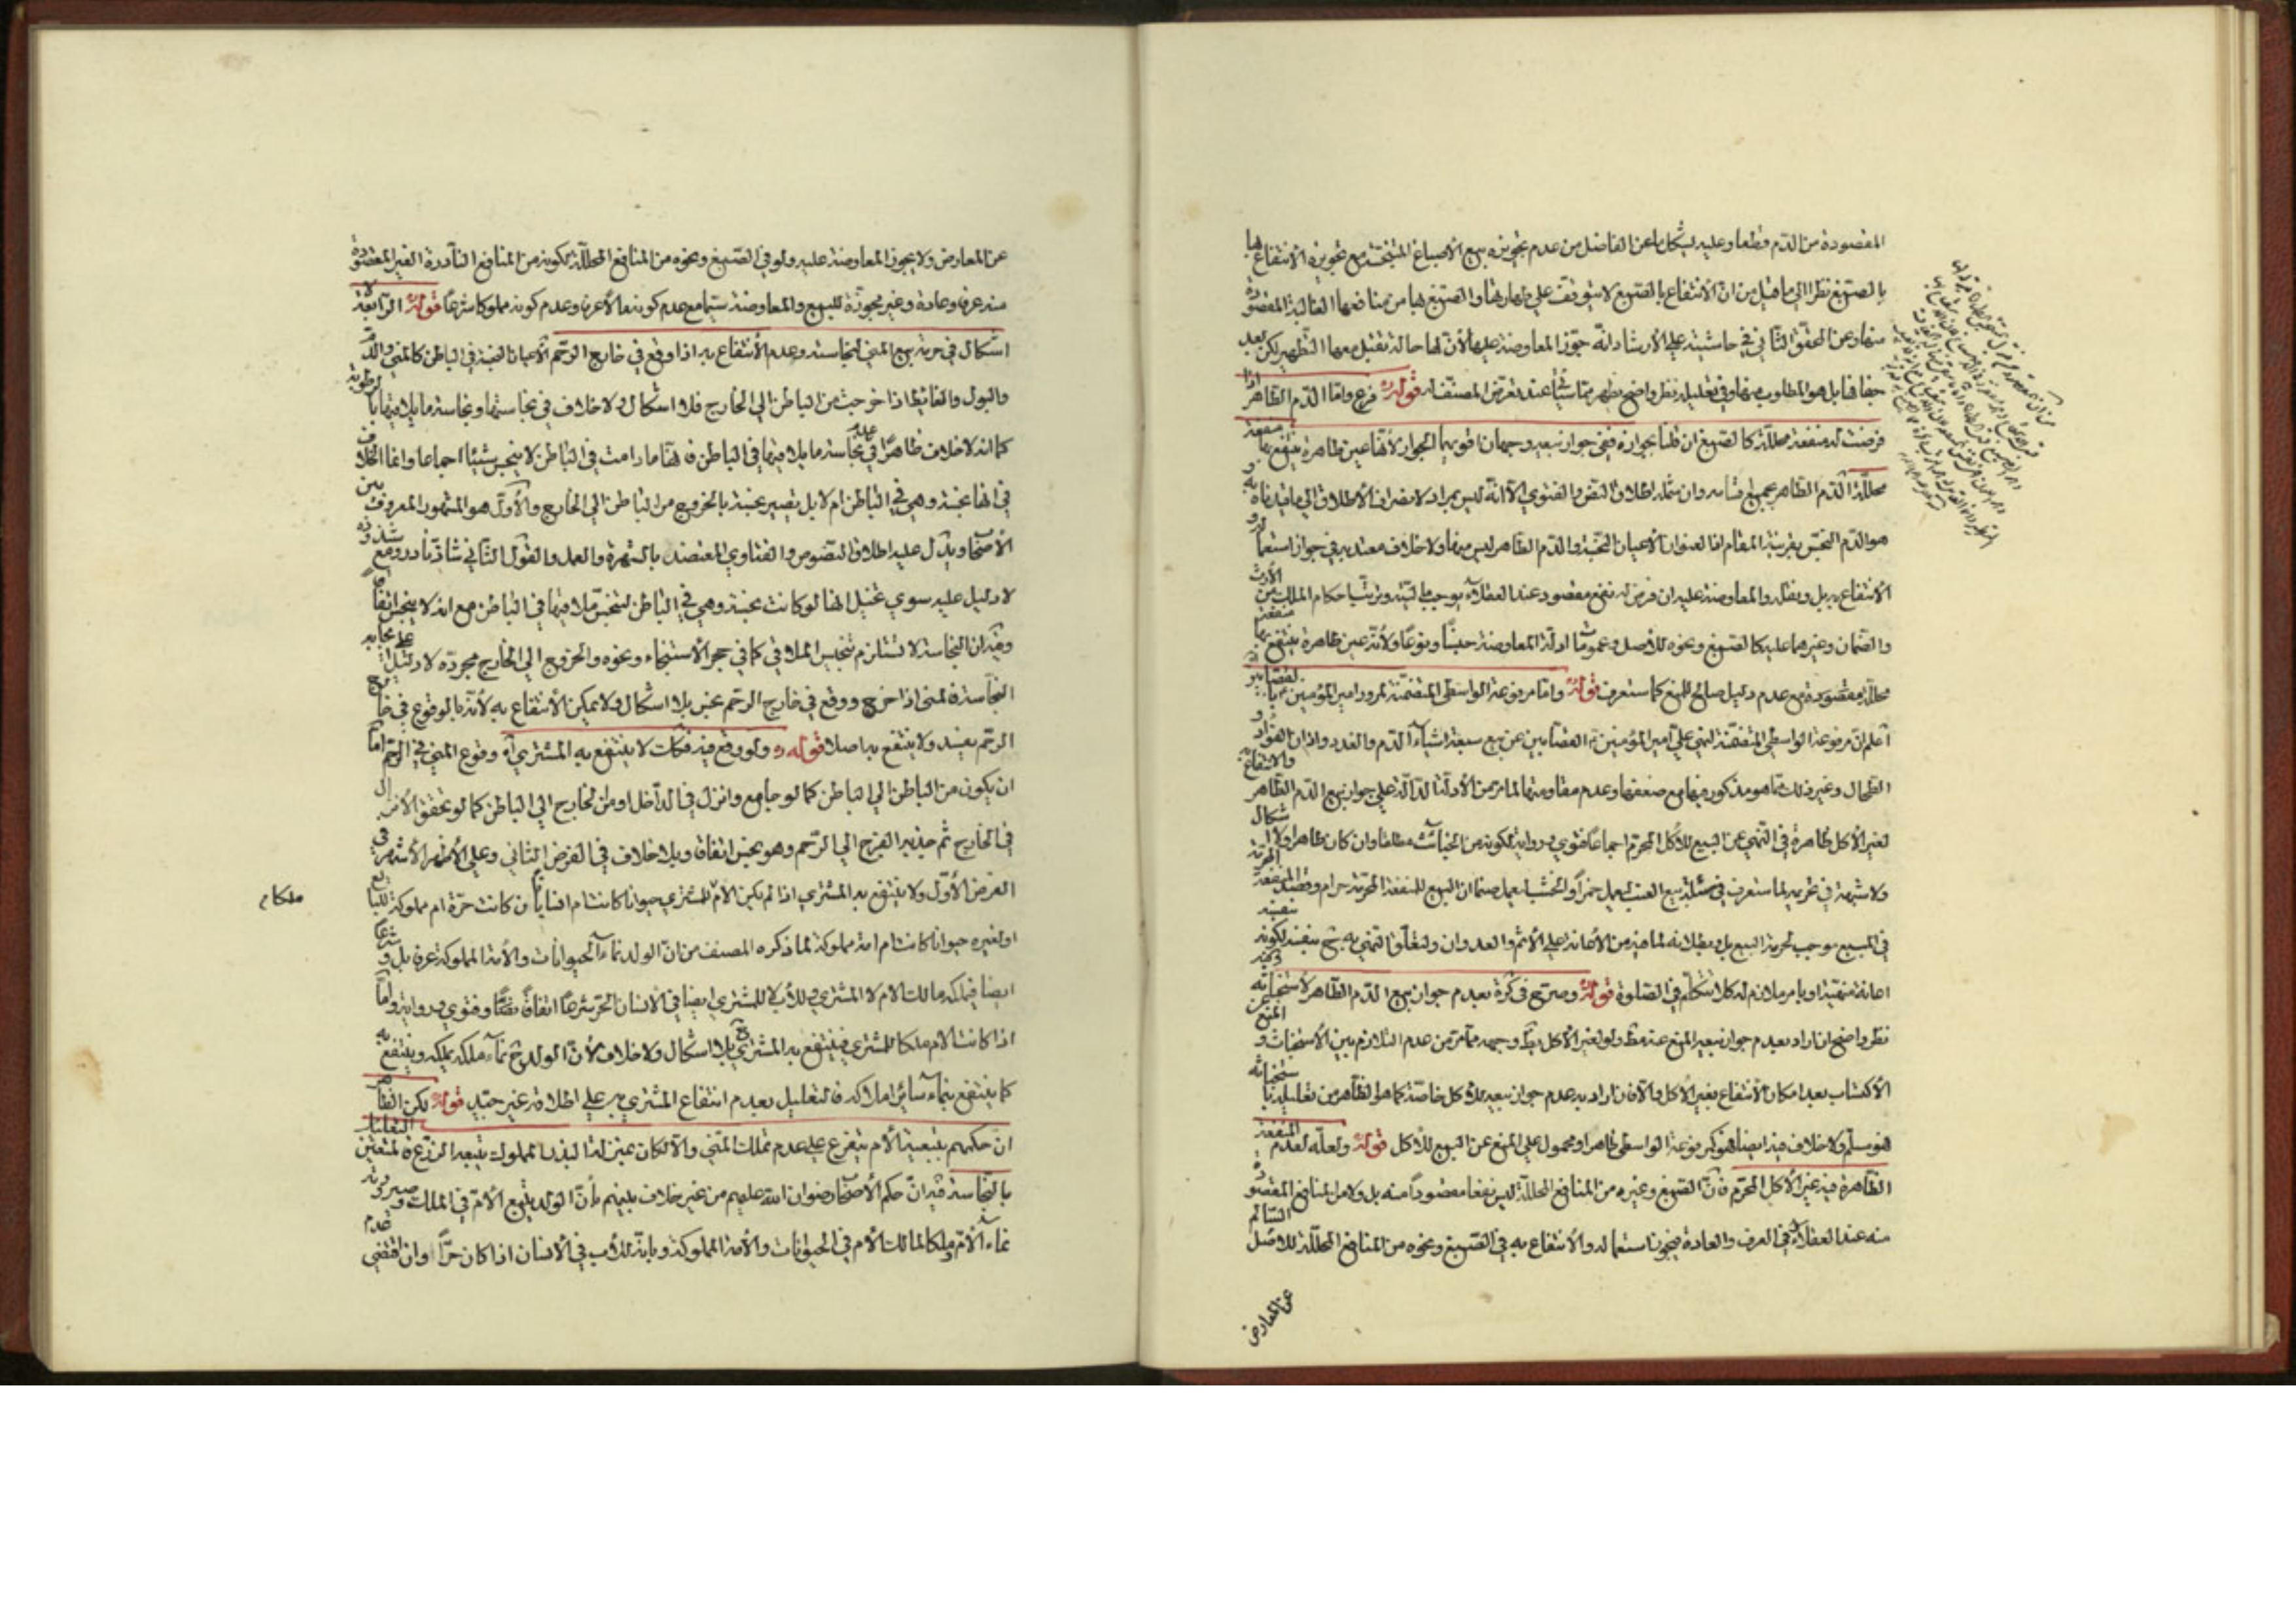 المقصودة من الدّم قطعا وعليه يشكل ما عن الفاضل من عدم تجويزه بيع الأصباغ المتنجّسة مع تجويزه الانتفاع بها
بالصّبغ نظرا الى ما قيل من انّ الأنتفاع بالصّبغ لا يتوقّف على طهارتها والصّبغ بها من منافعها الغالبة المقصودة
منها وعن المحقّق الثّاني في حاشيته على الأرشاد انّه جوّز المعاوضة عليها لأنّ لها حالة تقبل معها التّطهير لكن بعد
جفافها بل هو المطلوب منها وفي تعليله نظر واضح يظهر ممّا سيأتي عند تعرّض المصنّف له قوله ره فرع وامّا الدّم الطّاهر اذا
فرضت له منفعة محلّلة كالصّبغ ان قلنا بجوازه ففي جواز بيعه وجهان اقويهما الجواز لأنّها عين طاهرة ينتفع بها منفعة
محلّلة الدّم الطّاهر بجميع اقسامه وان شمله اطلاق النّص والفتوى الّا انّه ليس بمراد لانصراف الأطلاق الى ما قيدناه به و
هو الدّم النّجس بقرينة المقام اذ العنوان الأعيان النّجسة والدّم الطّاهر ليس منها ولا خلاف معتد به في جواز استعماله و
الأنتفاع به بل ونقله والمعاوضة عليه ان فرض له نفع مقصود عند العقلاء يوجب ماليّته وترتّب احكام الملك من الأرث
والضّمان وغيرهما عليه كالصّبغ ونحوه للأصل وعمومات ادلّة المعاوضة جنسًا ونوعًا ولأنّه عين طاهرة ينتفع بها منفعة
محلّلة مقصودة مع عدم دليل صالح للمنع كما ستعرف قوله ره وامّا مرفوعة الواسطي المتضمّنة لمرور امير المؤمنين ع بالقصّابين اه
أعلم انّ مرفوعة الواسطي المتضمّنة لنهي علي أمير المؤمنين ع القصّابين عن بيع سبعة اشياء الدّم والغدد واذان الفؤاد و
الطّحال وغير ذلك ممّا هو مذكور فيها مع ضعفها وعدم مقاومتها لما مرّ من الأدلّة الدّالّة على جواز بيع الدّم الطّاهر والانتفاع به
لغير الأكل ظاهرة في النّهي عن البيع للأكل المحرّم اجماعا فتوى ورواية لكونه من الخبائث مطلقا وان كان طاهرا ولا اشكال
ولا شبهة في تحريمه لما ستعرف في مسئلة بيع العنب ليعمل خمرًا والخشب ليعمل صنما ان البيع للمنفعة المحرّمة حرام وقصد المنفعة المحرّمة
في المبيع موجب لحرمة البيع بل وبطلانه لما فيه من الأعانة على الأثم والعدوان ولتعلّق النّهي به ح بنفسه لكونه بنفسه
نظر واضح ان اراد بعدم جواز بيعه المنع عنه مط ولو لغير الأكل
الأكتساب بعد امكان الأنتفاع بغير الأكل والّا فان اراد به عدم جواز بيعه للأكل خاصّة كما هو الظّاهر من تعليله باستخباثه
فهو مسلّم ولا خلاف فيه ايضا فهو كمرفوعة الواسطي ظاهر او محمول على المنع عن البيع للأكل قوله ره ولعلّه لعدم المنفعة
الظّاهرة فيه غير الأكل المحرّم فانّ الصّبغ وغيره من المنافع المحلّلة ليس نفعا مقصودًا منه بل ولا من المنافع المقصودة
منه عند العقلاء في العرف والعادة فيجوز استعماله والأنتفاع به في الصّبغ ونحوه من المنافع المحلّلة للأصل السّالم
عن المعارض
عن المعارض ولا يجوز المعاوضة عليه ولو في الصّبغ ونحوه من المنافع المحلّلة لكونه من المنافع النّادرة الغير المقصودة
منه عرفا وعادة وغير مجوّزة للبيع والمعاوضة سيّما مع عدم كونه مالا عرفا وعدم كونه مملوكا شرعًا قوله ره الرّابعة لا
اشكال في حرمة بيع المني لنجاسته وعدم الأنتفاع به اذا وقع في خارج الرّحم الأعيان النّجسة في الباطن كالمني والدّم
والبول والغائط اذا خرجت من الباطن الى الخارج فلا اشكال ولا خلاف في نجاستها ونجاسة ما يلاقيها بالرطوبة
كما انه لا خلاف ظاهرًا في عدم نجاسة ما يلاقيها في الباطن فانّها ما دامت في الباطن لا ينجس شيئا اجماعا وانما الخلاف
في انها نجسة وهي في الباطن ام لا بل تصير نجسة بالخروج من الباطن الى الخارج والأوّل هو المشهور المعروف بين
الأصحاب ويدّل عليه اطلاق النّصوص والفتاوي المعتضد بالشهرة والعمل والقول الثّاني شاذ نادر ومع شذوذه
لا دليل عليه سوى تخيل انها لو كانت نجسة وهي في الباطن لتنجّس ملاقيها في الباطن مع انه لا ينجس اتفاقا
وفيه ان النجاسة لا تستلزم تنجيس الملاقي كما في حجر الأستنجاء ونحوه والخروج الى الخارج مجرّده لا دليل على ايجابه
النجاسة فالمني اذا خرج ووقع في خارج الرّحم نجس بلا اشكال ولا يمكن الأنتفاع به لأنه بالوقوع في خارج
الرّحم يفسد ولا ينتفع به اصلا قوله ره ولو وقع فيه فكذلك لا ينتفع به المشتري اه وقوع المني في الرّحم امّا
ان يكون من الباطن الى الباطن كما لو جامع وانزل في الداخل او من الخارج الى الباطن كما لو تحقق الأنزال
في الخارج ثم جذبه الفرج الى الرّحم وهو نجس اتفاقا وبلا خلاف في الفرض الثاني وعلى الأظهر الأشهر في
الفرض الأوّل ولا ينتفع به المشتري اذا لم يكن الأم للمشتري حيوانا كانت ام انسانا بان كانت حرّة ام مملوكة للبايع
او لغيره حيوانا كانت ام امة مملوكة لما ذكره المصنف من انّ الولد نماء الحيوانات والأمة المملوكة عرفا بل وشرعًا
ايضا فيملكه مالك الام لا المشتري وللأب لا للمشتري ايضا في الأنسان الحر شرعًا اتفاقًا نصًّا وفتوى ورواية وامّا
اذا كانت الام ملكا للمشتري فينتفع به المشتري ح بلا اشكال ولا خلاف لأنّ الولد ح نماء ملكه يملكه وينتفع به
كما ينتفع بنماء سائر املاكه فالتعليل بعدم انتفاع المشتري به على اطلاقه غير جيّد قوله ره لكن الظّاهر
ان حكمهم بتبعية الأم متفرع على عدم تملك المني والّا لكان بمنزلة البذر المملوك يتبعه الزّرع فالمتعيّن التعليل
بالنّجاسة فيه انّ حكم الأصحاب رضوان الله عليهم من غير خلاف بينهم بأنّ الولد يتبع الأمّ في الملك وصيرورته
نماء الأمّ وملكا لمالك الأم في الحيوانات والأمة المملوكة وبانه للأب في الأنسان اذا كان حرًّا وان اقتضى عدم
ملكا م